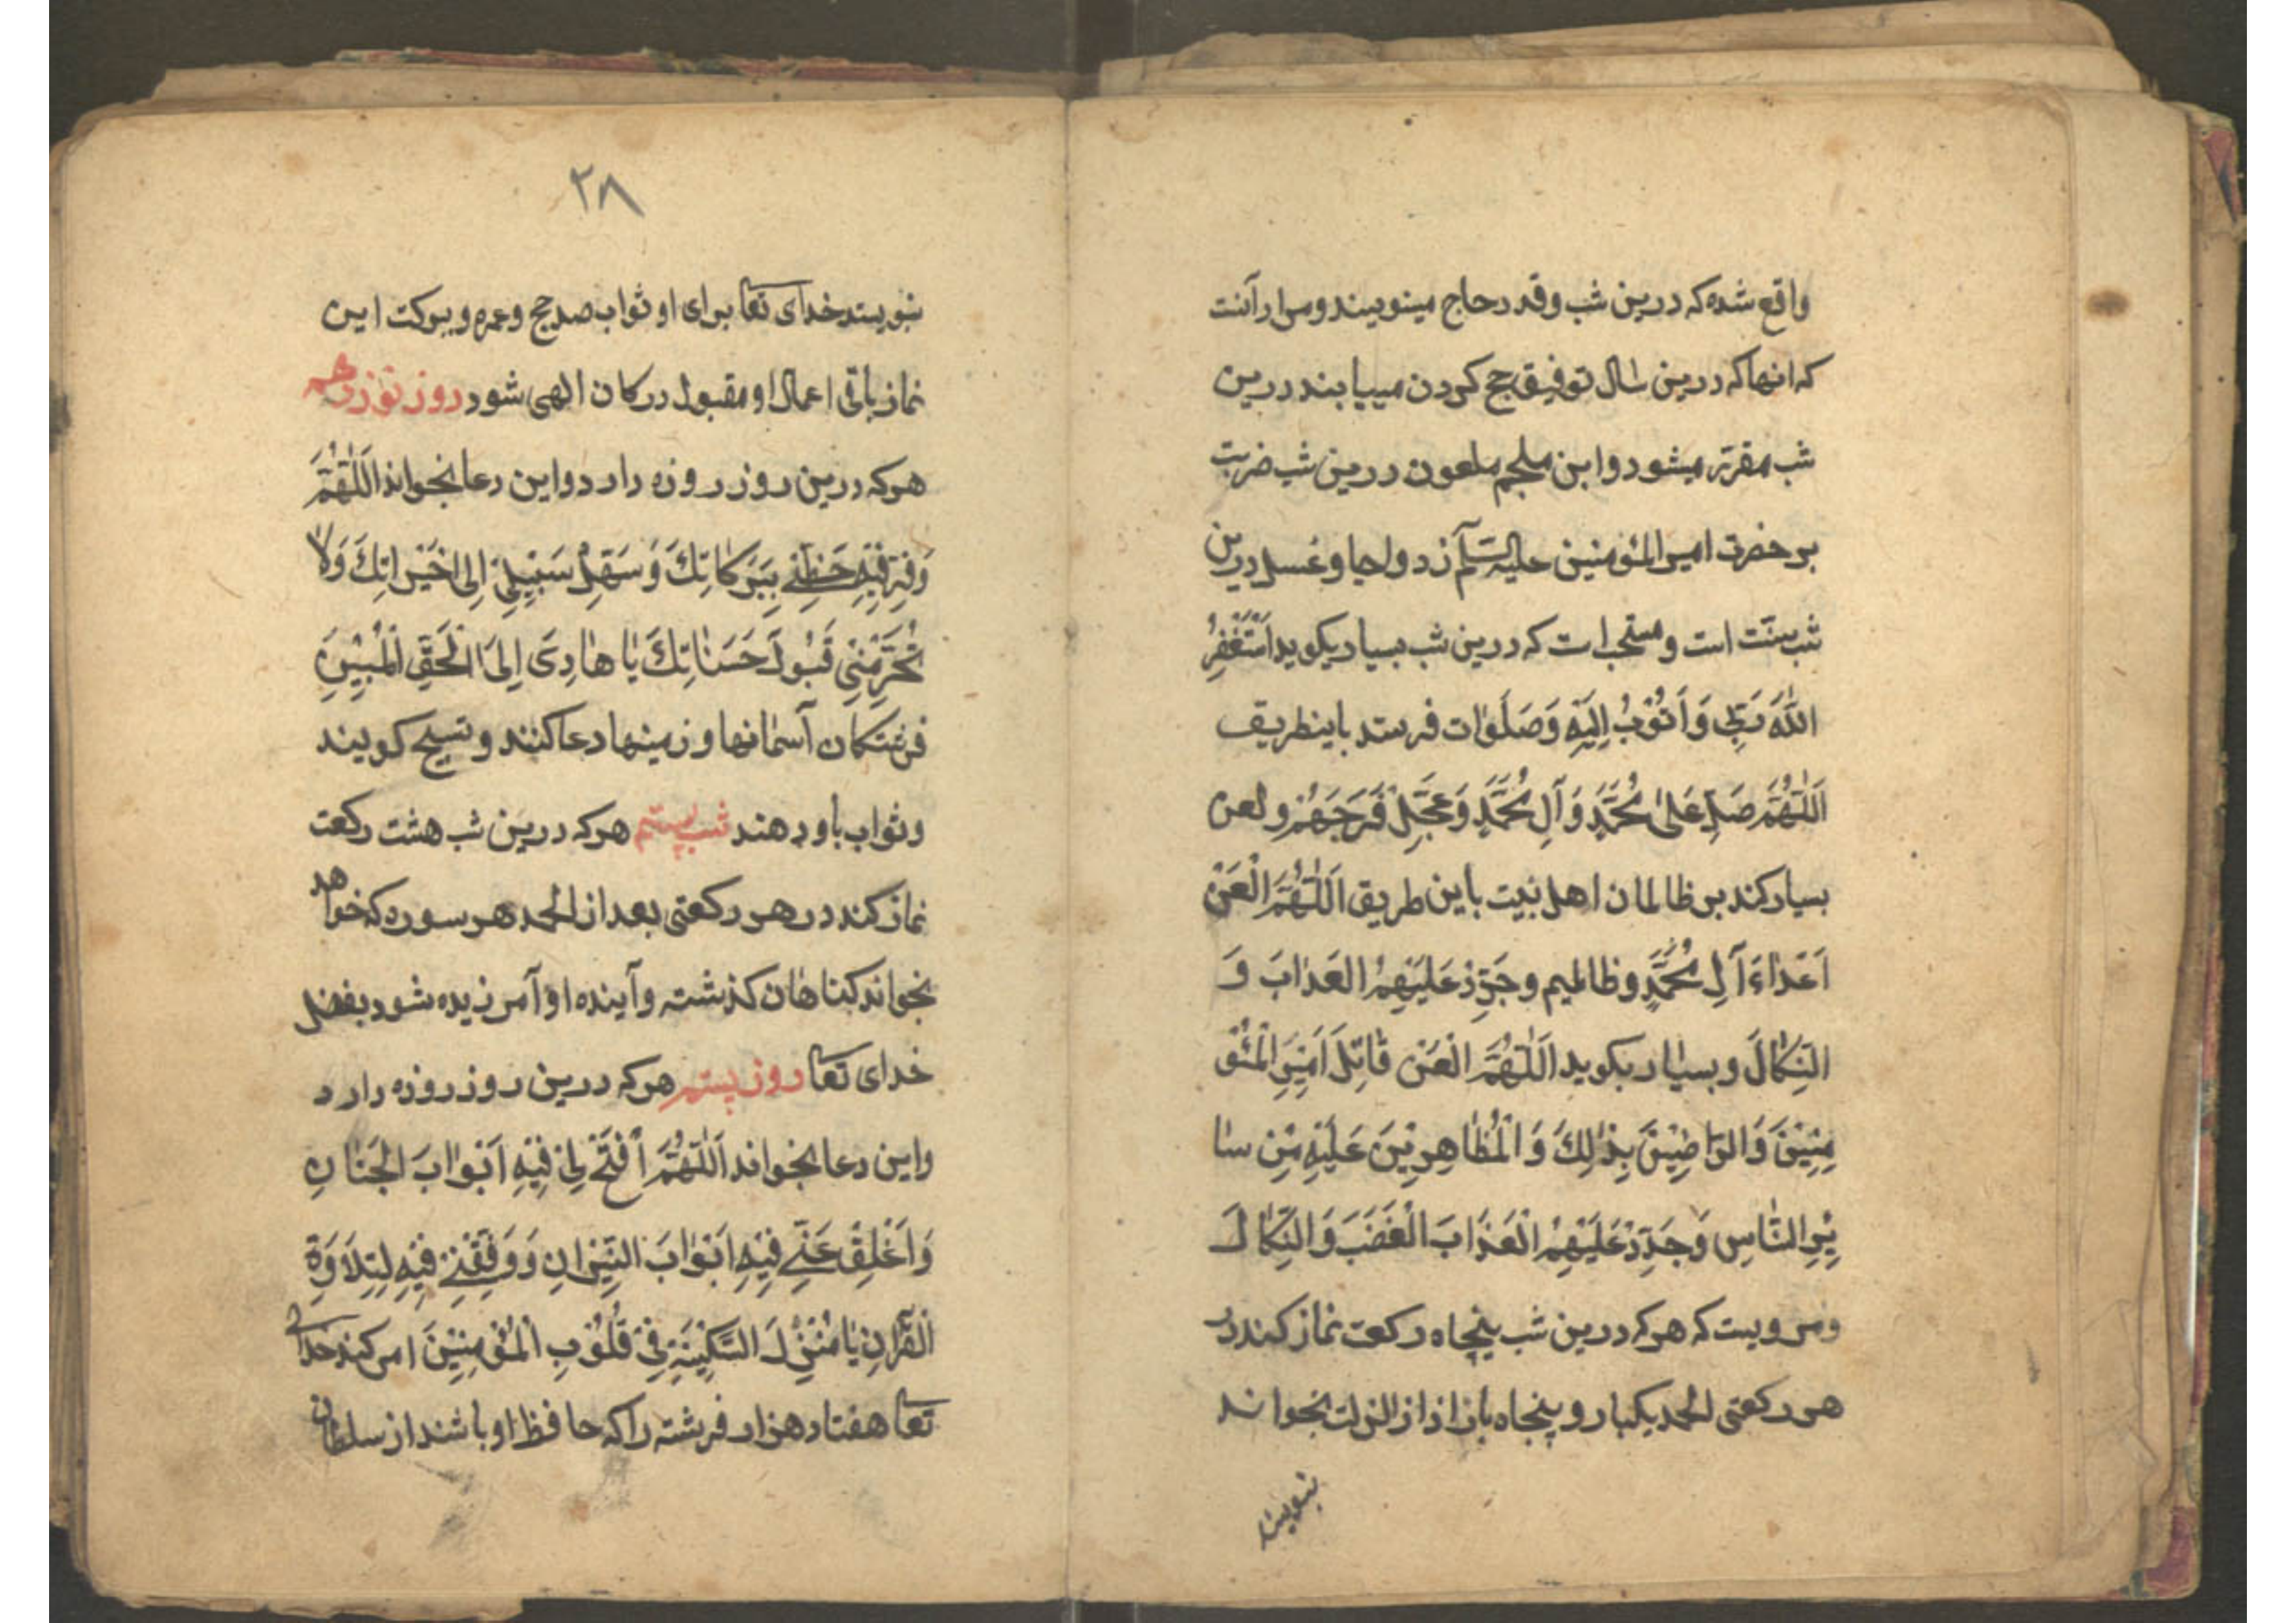 واقع شده که درین شب وفد در حاج مینویسند و مراد آنست
که انها که درین سال توفیق حج کردن مییابند درین
شب مقرّر میشود و ابن ملجم ملعون درین شب ضربت
بر حضرت امیر المؤمنین علیه السّلم زد و احیا و غسل درین
شب سنّت است و مستحب است که درین شب بسیار بکوید اَسْتَغْفِرُ
اللّٰهَ رَبّی وَ اَتُوْبُ اِلَیْهِ وَ صَلَوٰات فرستد باینطریق
اَللّٰهُمَّ صَلِّ عَلیٰ مُحَمَّدٍ وَ آلِ مُحَمَّدٍ وَ عَجِّلْ فَرَجَهُمْ و لعن
بسیار کند بر ظالمان اهل بیت باین طریق اَللّٰهُمَّ الْعَنْ
اَعْدٰاءَ آلِ مُحَمَّدٍ و ظالمیم و جَدِّدْ عَلَیْهِمُ العَذٰابَ وَ
النَّکٰالَ و بسیار بکوید اَللّٰهُمَّ الْعَنْ قٰاتِلَ اَمِیْرِ الْمُؤْ
مِنِیْنَ وَ الرّاضِیْنَ بِذٰلِکَ وَ الْمُظٰاهِرِیْنَ عَلَیْهِ مِنْ سٰا
یِرِ النّٰاسِ وَ جَدِّدْ عَلَیْهِمُ الْعَذَابَ الْغَضَبَ وَ النَّکٰالَ
و مرویست که هر که درین شب پنجاه رکعت نماز کند در
هر رکعتی الحمد یکبار و پنجاه بار اذا زلزلت بخواند
بنویسد
۲۸
بنویسد خدای تعا برای او ثواب صد حج و عمره و ببرکت این
نماز باقی اعمال او مقبول درکان الهی شود روز نوزدهم
هر که درین روز روزه دارد و این دعا بخواند اَللّٰهُمَّ
وَفِّرْ فِیْهِ حَظّیْ بِبَرَکٰاتِکَ وَ سَهِّلْ سَبِیْلِیْ اِلیٰ خَیْرٰاتِکَ وَ لاٰ
تُحَرِّمْنِیْ قَبُوْلَ حَسَنٰاتِکَ یٰا هٰادِیَ اِلیَ الْحَقِّ الْمُبِیْنِ
فرشتکان آسمانها و زمینها دعا کنند و تسبیح کویند
و ثواب باو دهند شب بیستم هر که درین شب هشت رکعت
نماز کند در هر رکعتی بعد از الحمد هر سوره که خواهد
بخواند کناهان کذشته و آینده او آمرزیده شود بفضل
خدای تعا روز بیستم هر که درین روز روزه دارد
و این دعا بخواند اَللّٰهُمَّ اَفْتَحْ لِیْ فِیْهِ اَبْوٰابَ الْجَنٰانِ
وَ اَغْلِقْ عَنّیْ فِیْهِ اَبْوٰابَ النِّیْرٰانِ وَ وَفِّقْنِیْ فِیْهِ لِتِلاَوَةِ
الْقُرْآنِ یٰا مُنْزِلَ السَّکِیْنَةِ فِیْ قُلُوْبِ الْمُؤْمِنِیْنَ امر کند خدای
تعا هفتاد هزار فرشته را که حافظ او باشند از سلطان